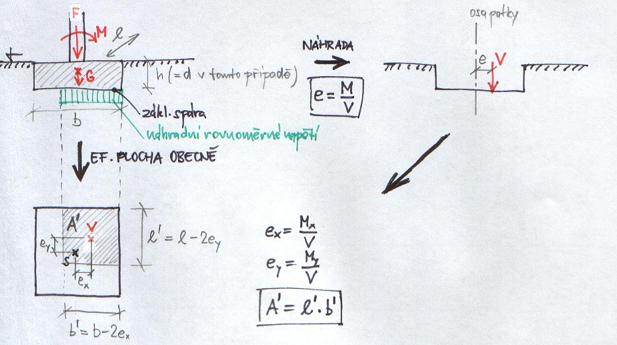 F
M
l
G
h (= d v tomto případě)
b
zákl. spára
náhradní rovnoměrné napětí
NÁHRADA
e = M/V
osa patky
e
V
EF. PLOCHA OBECNĚ
A'
V
e_y
S
e_x
l' = l - 2e_y
b' = b - 2e_x
e_x = M_x/V
e_y = M_y/V
A' = l' · b'